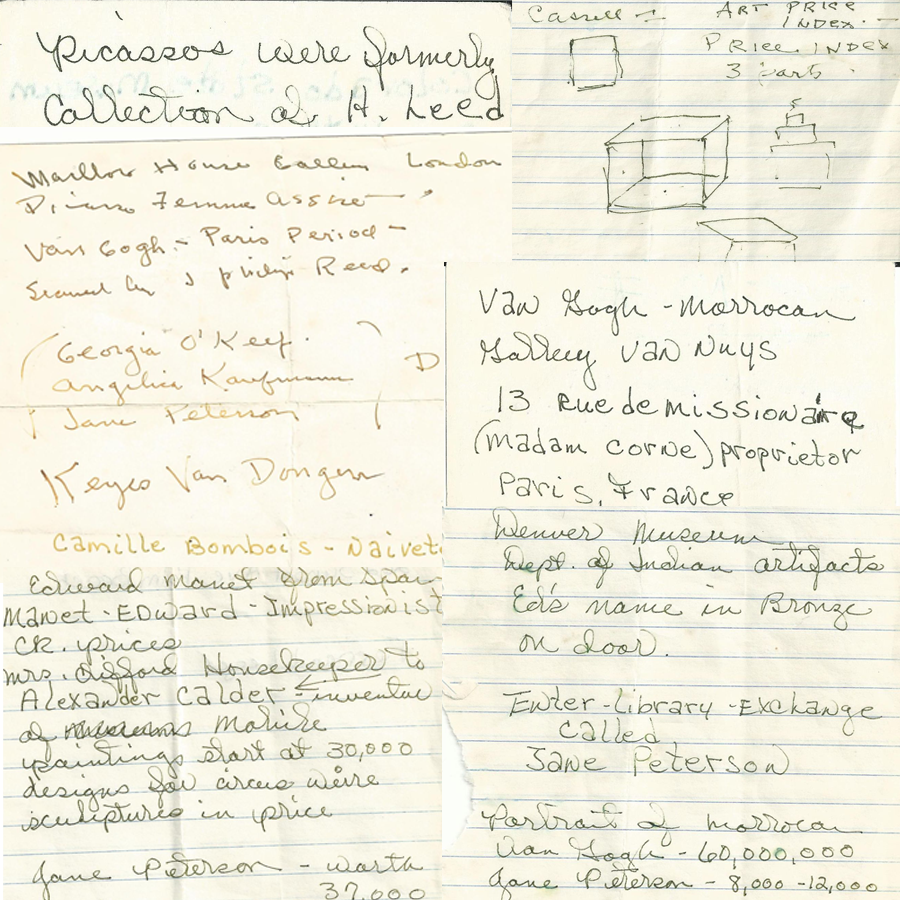 Picassos were formerly
Collection of H. Leed
Marllow House Gallery London
Picasso Femme assise
Van Gogh - Paris Period -
Signed by J philip Reed.
Georgia O'Keef.
Angelica Kaufmann
Jane Peterson
D
Keyes Van Dongen
Camille Bombois - Naivete
Edward Manet from Spain
Manet - EDward - Impressionist
CK. prices
mrs. Gifford Housekeeper to
Alexander Calder - inventor
of Mobile
paintings start at 30,000
designs for circus wire
sculptures in price
Jane Peterson - worth
37,000
Cassell -
ART PRICE
INDEX. -
PRICE INDEX
3 parts
Van Gogh - Morrocan
Gallery Van Nuys
13 Rue de missionaire
(Madam Corne) proprietor
Paris, France
Denver Museum
Dept. of Indian artifacts
Ed's name in Bronze
on door.
Enter-Library-Exchange
Called
Jane Peterson
Portrait of Morrocan
Van Gogh - 60,000,000
Jane Peterson - 8,000 - 12,000